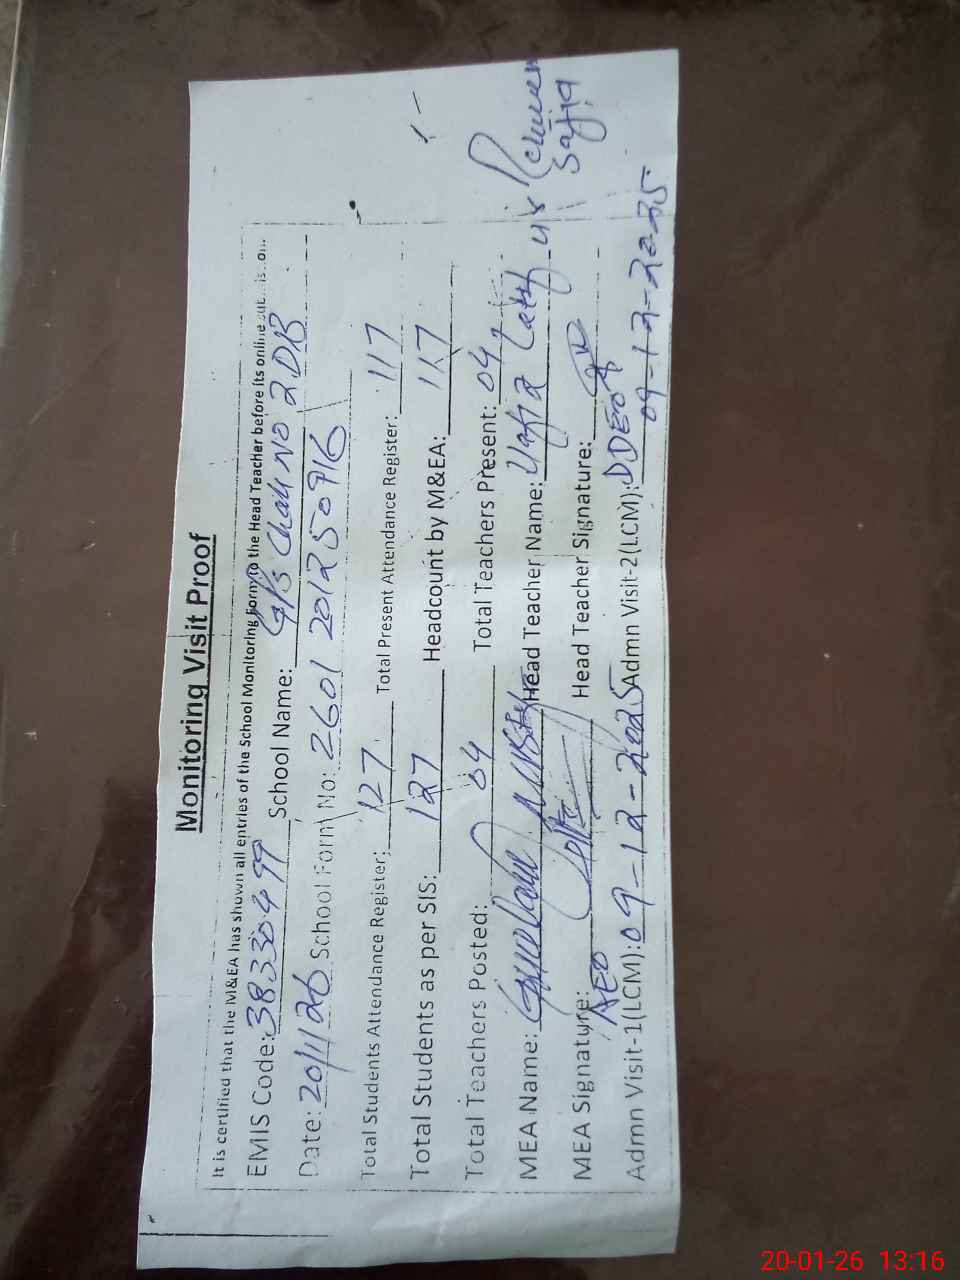 Monitoring Visit Proof
It is certified that the M&EA has shown all entries of the School Monitoring Form to the Head Teacher before its online
EMIS Code: 38330499 School Name: G/S Chak No 2 DB
Date: 20/1/26 School Form No: 2601 201250716
Total Students Attendance Register: 127 Total Present Attendance Register: 117
Total Students as per SIS: 127 Headcount by M&EA: 117
Total Teachers Posted: 04 Total Teachers Present: 04
MEA Name: Head Teacher Name:
MEA Signature: Head Teacher Signature:
AEO DDEO
Admn Visit-1(LCM): 09-12-2025 Admn Visit-2(LCM): 09-12-2025
20-01-26 13:16